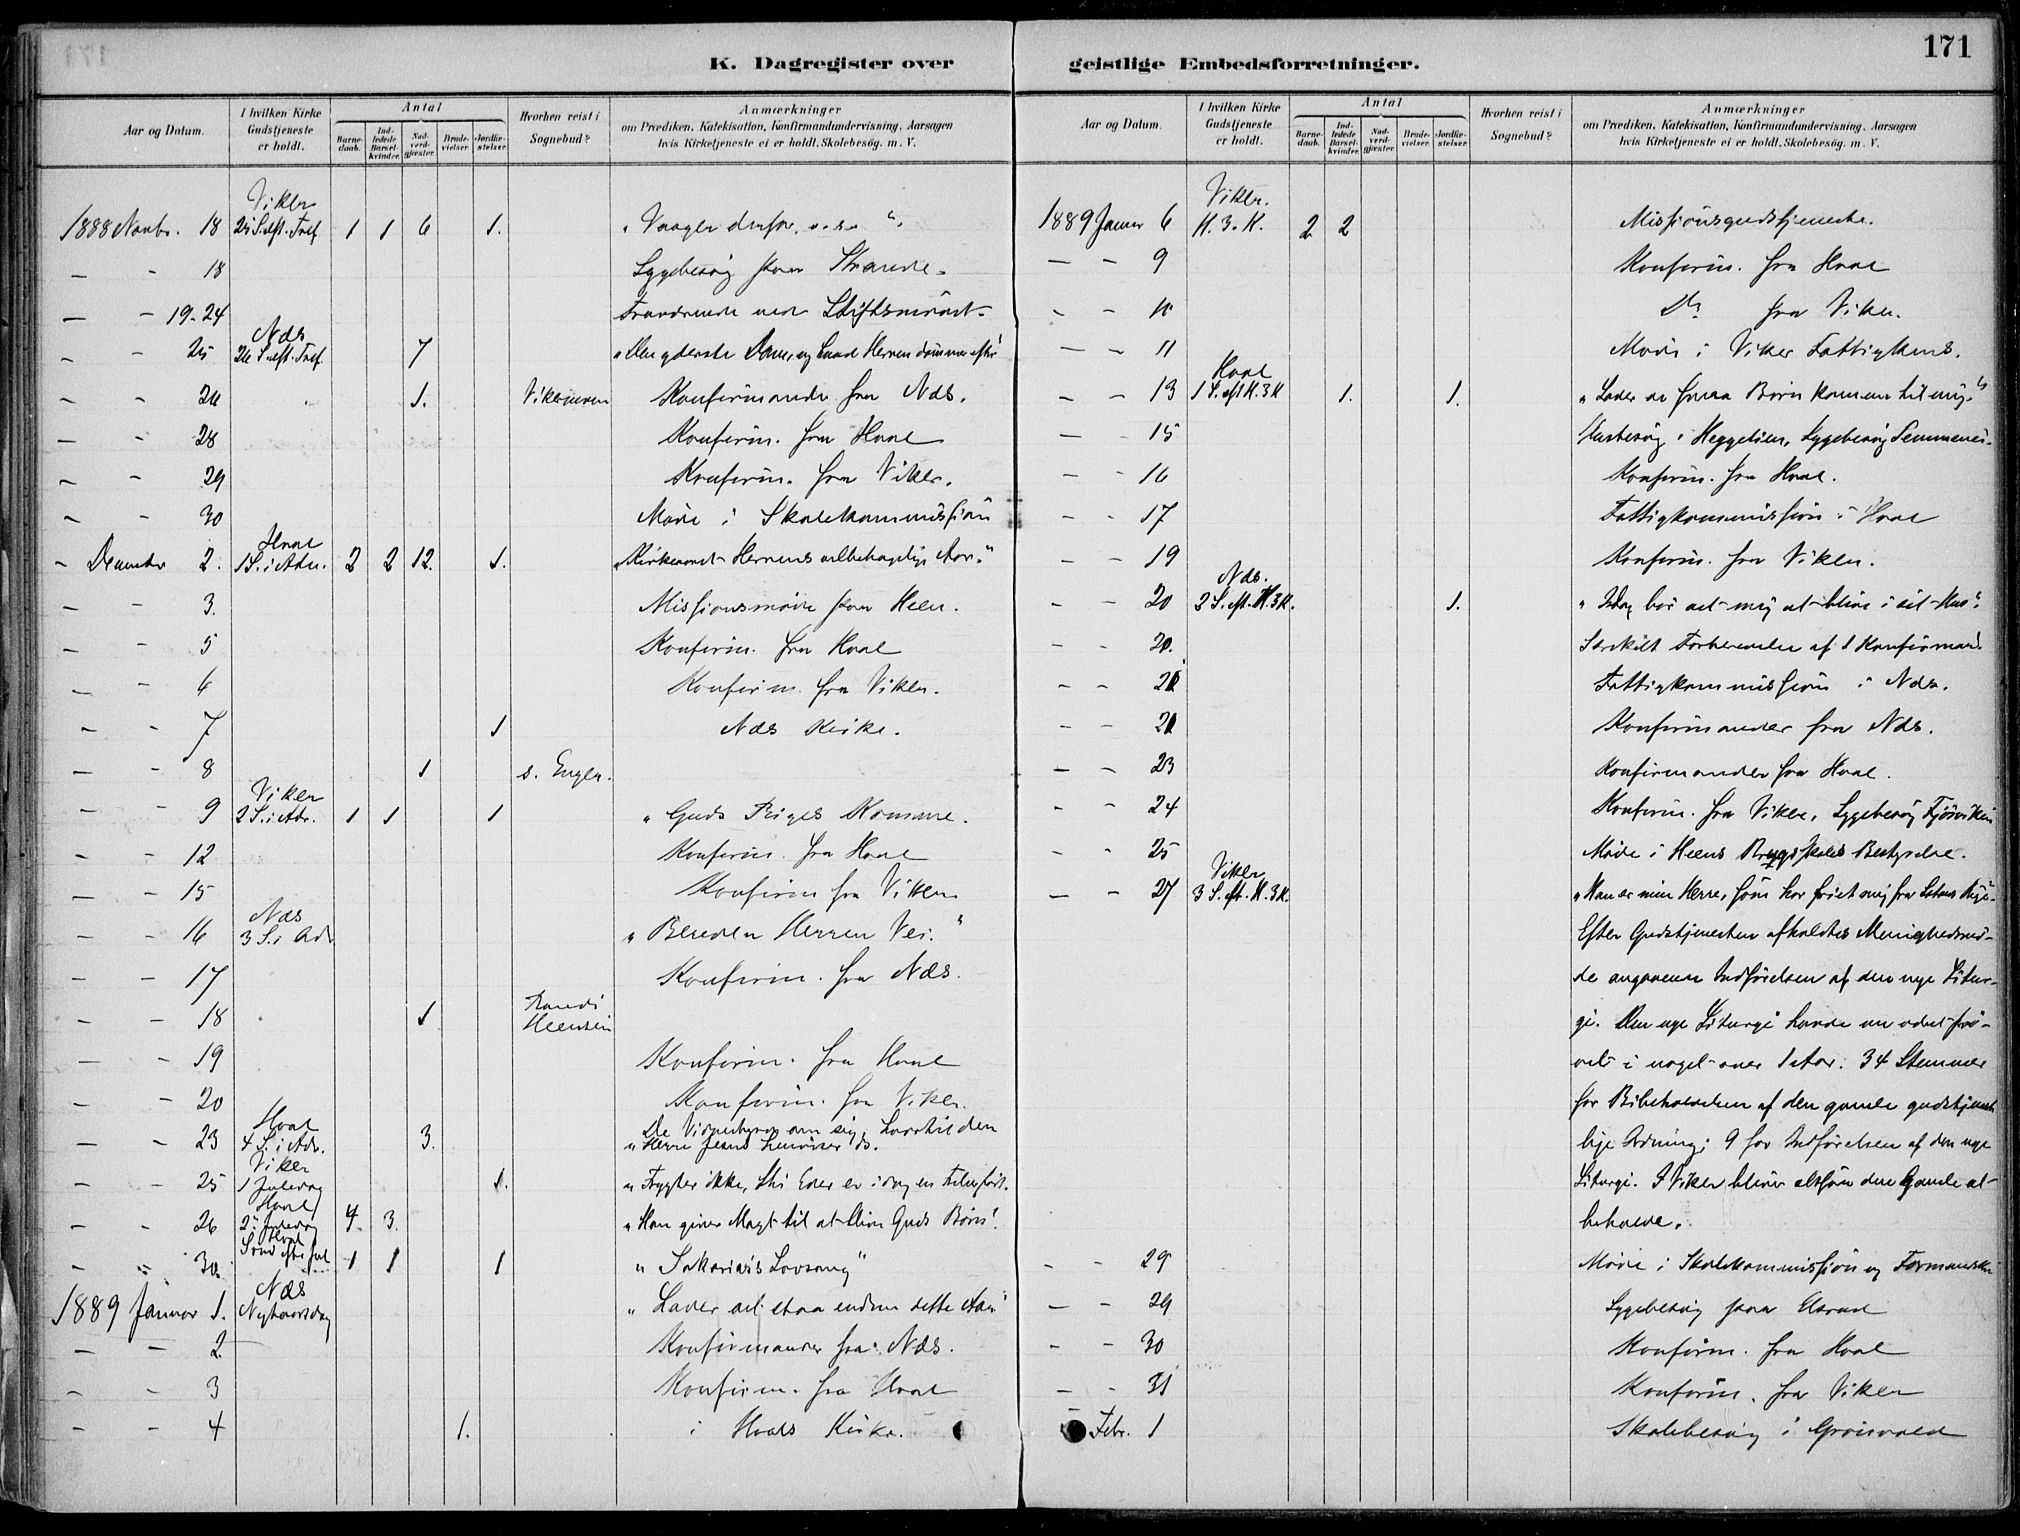 171
K. Dagregister over geistlige Embedsforretninger.
Aar og Datum.
I hvilken Kirke Gudstjeneste er holdt.
Antal
Barnedaab.
Indledede Barselkvinder.
Nadverdgjæster.
Brudevielser.
Jordfæstelser.
Hvorhen reist i Sognebud?
Anmærkninger
om Prædiken, Katekisation, Konfirmandundervisning, Aarsagen
hvis Kirketjeneste ei er holdt, Skolebesøg. m. V.
Viker
1888 Novbr. 18 25 S. eft. Tref. 1 1 6 1. "Vaager derfor, o. s. v."
— - 18 Sygebesøg paa Strande.
— - 19-24 Fraværende ved Stiftsmødet.
Næs
- - 25 26 S. eft. Tref. 7
- - 26 1. Konfirmander fra Næs.
- - 28 Konfirm. fra Hval
- - 29 Konfirm. fra Viker.
- - 30 Møde i Skolekommission
Hval
- December 2. 1 S. i Adv. 2 2 12. 1. Herrens velbehagelige Aar."
- - 3. Missionsmøde paa Heen.
- - 5 Konfirm. fra Hval
- - 6 Konfirm. fra Viker.
- - 7 1 Næs Kirke.
- - 8 1 s. Engen.
Viker
- - 9 2 S. i Adv. 1 1 1 "Guds Riges Komme.
- - 12 Konfirm. fra Hval
- - 15 Konfirm fra Viker
Næs
- - 16 3 S. i Adv "Bereder Herren Vei."
- - 17 Konfirm. fra Næs.
- - 18 1 Heensein
- - 19 Konfirm. fra Hval
- - 20 Konfirm. fra Viker.
Hval
- - 23 4 S. i Adv. 3. De Vidnesbyrd om sig, hvortil den
"Herre Jesus henviser os.
Viker
- - 25 1 Juledag 1. "Frygter ikke, thi Eder er idag en Frelser født.
Hval
- - 26 2. Juledag 4. 3. "Han giver Magt til at blive Guds Børn".
Hval
- " 30. Sønd. eft. Jul 1 1 1 "Sakarias's Lovsang"
Næs
1889 Januar 1. Nytaarsdag "Lader det staa endnu dette Aar"
— — 2. Konfirmander fra Næs.
- - 3 Konfirm. fra Hval
- - 4 1. i Hvals Kirke.
Aar og Datum.
I hvilken Kirke Gudstjeneste er holdt.
Antal
Barnedaab.
Indledede Barselkvinder.
Nadverdgjæster.
Brudevielser.
Jordfæstelser.
Hvorhen reist i Sognebud?
Anmærkninger
om Prædiken, Katekisation, Konfirmandundervisning, Aarsagen
hvis Kirketjeneste ei er holdt, Skolebesøg. m. V.
Viker.
1889 Januar 6 H. 3. K. 2 2 Missionsgudstjeneste.
— - 9 Konfirm. fra Hval
- - 10 Do fra Viker.
— - 11 Møde i Viker Fattigkoms.
Hval
- - 13 1 S. eft H. 3 K 1. 1. "Lader de smaa Børn komme til mig."
— - 15 Husbesøg i Heggelien, Sygebesøg
- - 16 Konfirm. fra Hval.
- - 17 Fattigkommission i Hval
- - 19 Konfirm. fra Viker.
Næs.
- - 20 2 S. eft. H. 3 K. 1. "Idag bør det mig at blive i dit Hus".
- - 20. Særskilt Forberedelse af 1 Konfirmand.
- - 21 Fattigkommission i Næs.
- - 21 Konfirmander fra Næs.
— - 23 Konfirmander fra Hval.
- - 24 Konfirm. fra Viker, Sygebesøg
- - 25 Møde i Heens Bestyrelse.
Viker
— - 27 3 S. eft. H. 3 K. "Han er min Herre, som har friet mig fra
Efter Gudstjenesten afholdtes Menighedsmø-
de angaaende Indførelsen af den nye Litur-
gi. Den nye Liturgi havde været prø-
vet i noget over 1 Aar. 34 Stemmer
for Bibeholdelsen af den gamle gudstjenst-
lige Ordning; 9 for Indførelsen af den nye
Liturgi. I Viker bliver altsaa den gamle at
beholde.
- - 29 Møde i Skolekommission og
— - 29 Sygebesøg paa
- - 30 Konfirm. fra Hval
— - 31 Konfirm. fra Viker
- Febr. 1 Skolebesøg i Grønvold